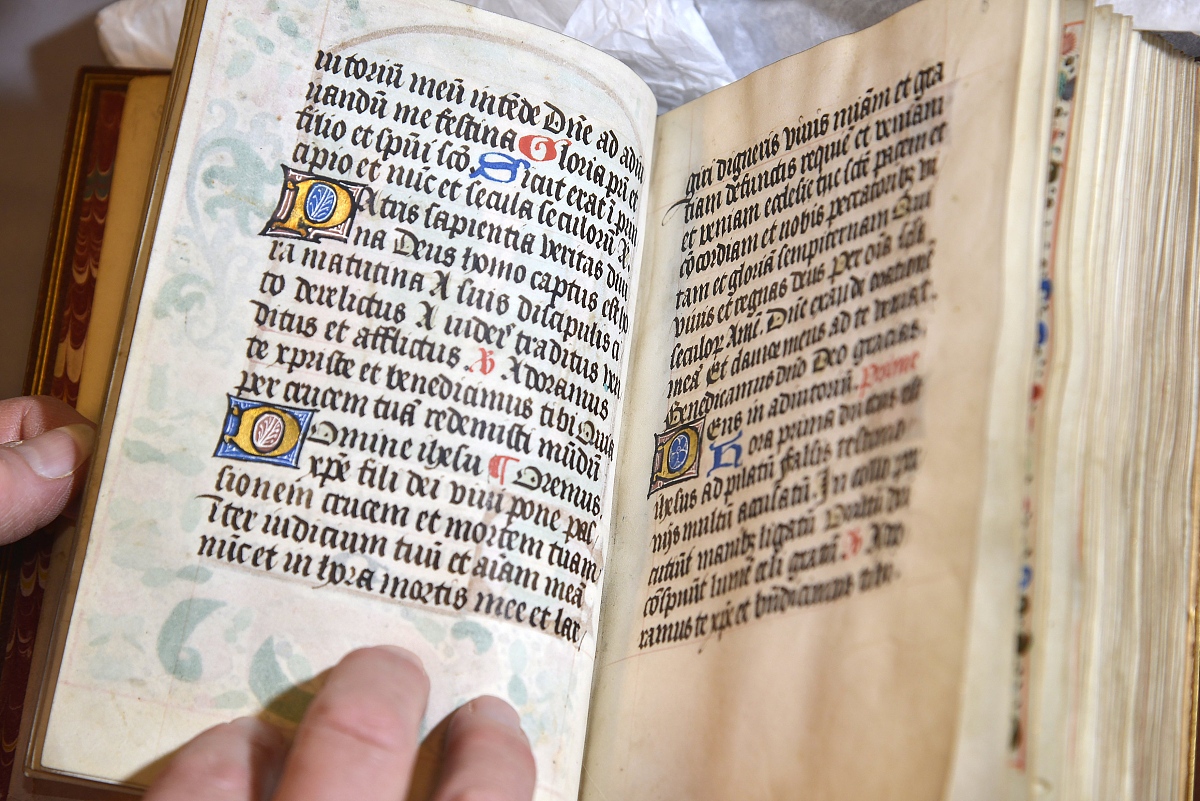 iutoriū meū intēde Dn̄e ad adiu
uandū me festina Gloria pr̄i et
filio et spiūi scō. Sicut erat ī prin
cipio et nūc et secula seculorū A.
PAtris sapientia veritas diui
na Deus homo captus est ho
ra matutina A suis discipulis ci
to derelictus A iudeis traditus ven
ditus et afflictus ℣ Adoramus
te xpriste et benedicimus tibi Quia
per crucem tuā redemisti mūdū
DOmine ihesu ¶ Oremus
xp̄e fili dei viui pone pas
sionem crucem et mortem tuam
īter iudicium tuū et aīam meā
nūc et in hora mortis mee et lar
giri digneris viuis mīam et gr̄a
tiam defunctis requiē et veniam
et veniam ecclesie tue scē pacem et
cōcordiam et nobis peccatoribꝫ vi
tam et gloriā sempiternam Qui
viuis et regnas deus Per oīa sēla
seculoꝝ Amē. Dn̄e exaudi orationē
meā Et clamor meus ad te veniat.
Benedicamus dn̄o Deo gracias. Prime
DEus in adiutoriū.
Hora prima ductus est
ihesus ad pilatū falsis testimo
nijs multū accusatū. In collo
cutiūt manibꝫ ligatū Vultū dei
cōspuūt lumē celi gratū ℣ Ado
ramus te xp̄e et bn̄dicimus tibi.